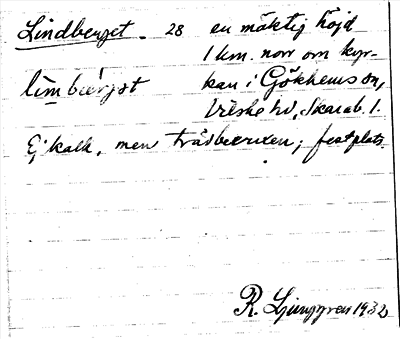 Lindberget. 28 en mäktig höjd
1 km. norr om kyr-
kan i Gökhems sn,
limbärjet
Vilske hd, Skarab. l.
Ej kalk, men trädbevuxen; festplats.
R. Ljunggren 1932